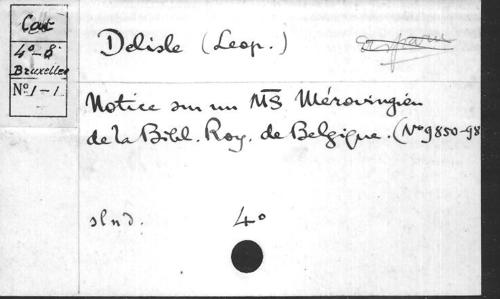 Cart
4º-8º
Bruxelles
Nº 1-1
Delisle (Leop.)
Notice sur un MS Mérovingien
de la Bibl. Roy. de Belgique. (Nº 9850-98
slnd. 4º